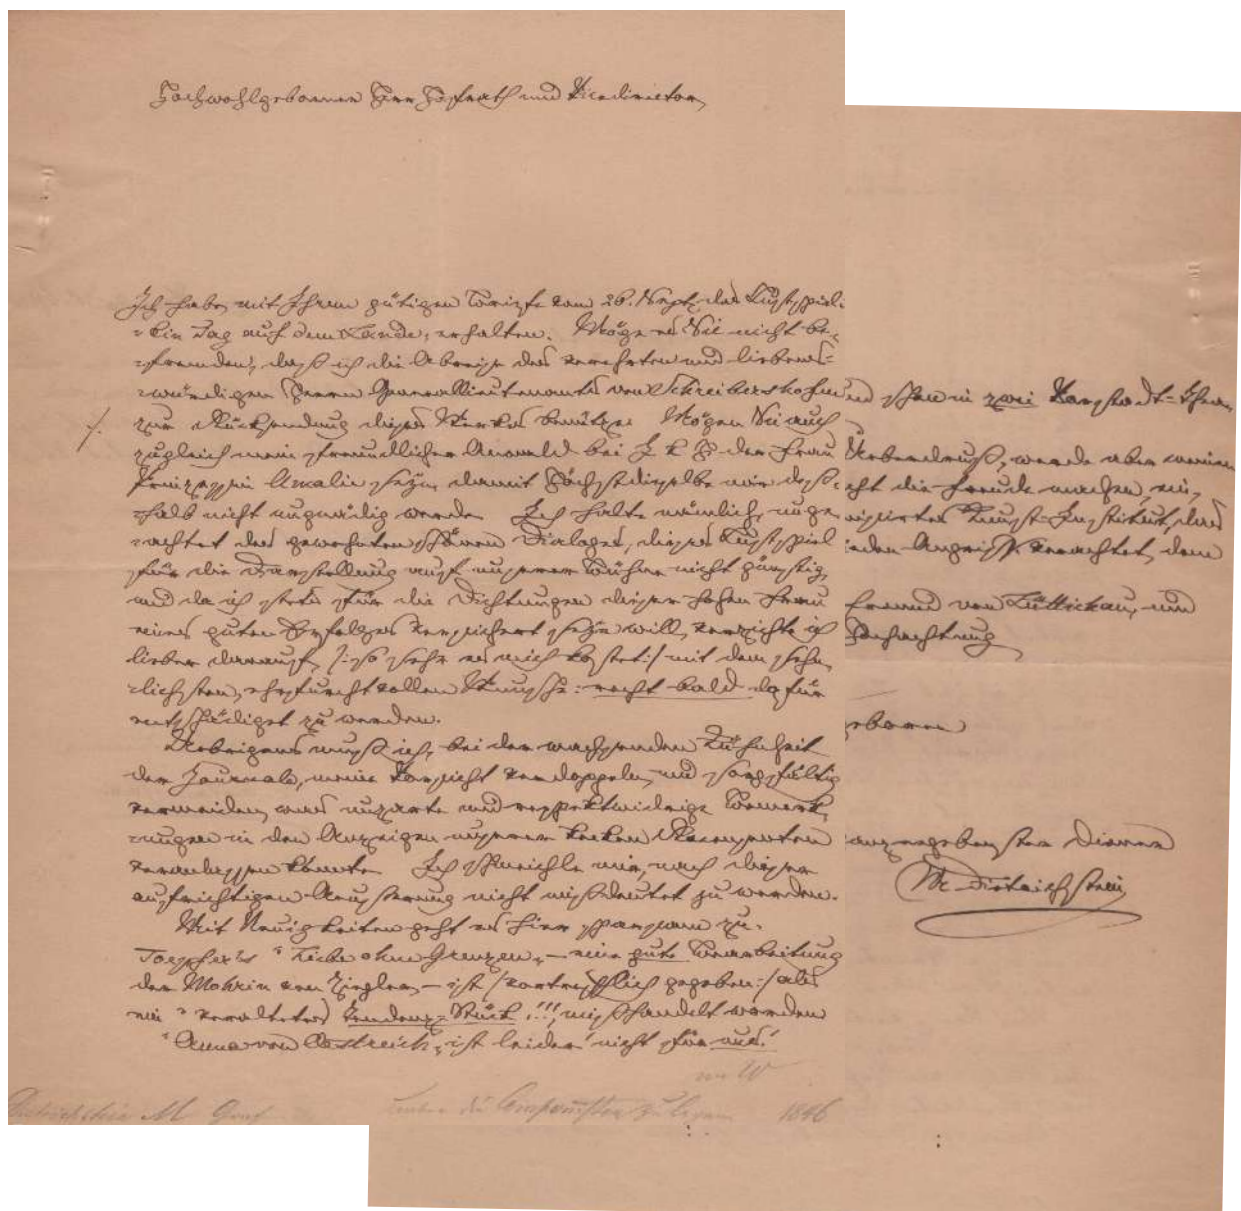 Hochwohlgeborner Herr Hofrath und Vicedirector,
Ich habe mit Ihrem gütigen Briefe vom 26. Sept. das Lustspiel:
"Ein Tag auf dem Lande" erhalten. Möge es Sie nicht be-
fremden, daß ich die Abreise des verehrten und liebens-
würdigen Herrn Generallieutenants von Schreibershofen
zur Rücksendung dieses Werkes benütze. Mögen Sie auch
zugleich mein freundlicher Anwald bei I. K. H. der Frau
Prinzessin Amalie seyn, damit Höchstdieselbe mir deß-
halb nicht ungnädig werde. Ich halte nämlich, unge-
achtet des gewohnten schönen Dialoges, dieses Lustspiel
für die Darstellung auf unserer Bühne nicht günstig,
und da ich stets für die Dichtungen dieser hohen Frau
eines guten Erfolges versichert seyn will, verzichte ich
lieber darauf, /: so sehr es mich kostet :/ mit dem sehn-
lichsten, ehrfurchtvollen Wunsche: recht bald dafür
entschädiget zu werden.
Uebrigens muß ich, bei der wachsenden Kühnheit
der Journale, meine Vorsicht verdoppeln, und sorgfältig
vermeiden, was unzarte und respektwidrige Bemerk-
ungen in den Anzeigen unserer kecken Recensenten
veranlassen könnte. Ich schmeichle mir, nach dieser
aufrichtigen Aeusserung nicht mißdeutet zu werden.
Mit Neuigkeiten geht es hier sparsam zu.
Toepfer's "Liebe ohne Grenzen" — eine gute Bearbeitung
der Mohrin von Ziegler, — ist /: vortrefflich gegeben :/ als
ein "veraltetes Tendenz-Stück"!!! mißhandelt worden
"Anna von Oestreich" ist leider nicht für uns!
Dietrichstein M Graf
1846
und schon in zwei Vorstadt-
Ueberdruß, werde aber meinen
nicht die Freude machen, ein
Kunst-Institut, das
jeden Angriff verachtet, dem
Freund von Lüttichau, und
Hochachtung
geboren
ganz ergebenster Diener
M. Dietrichstein